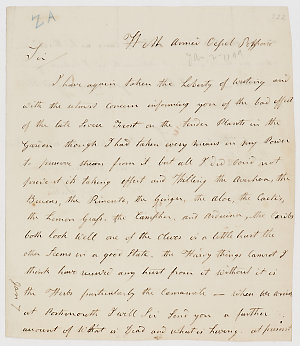 Sir
I have again taken the Liberty of writing and
with the utmost concern informing you of the bad effect
of the late Severe Frost on the tender Plants in the
Garden though I had taken every means in my Power
to preserve them from it but all I did could not
prevent its taking effect and Killing the
the Ginger, the Aloe, the Cactus,
the Lemon Grass, the Camphor, and
both look well one of the Cloves is a little hurt the
other seems in a good State. the Hardy things cannot I
think have received any hurt from it without it is
the Herbs particularly the Camomile — when we arrive
at Portsmouth I will Sir Send you a further
account of What is Dead and what is living. at present